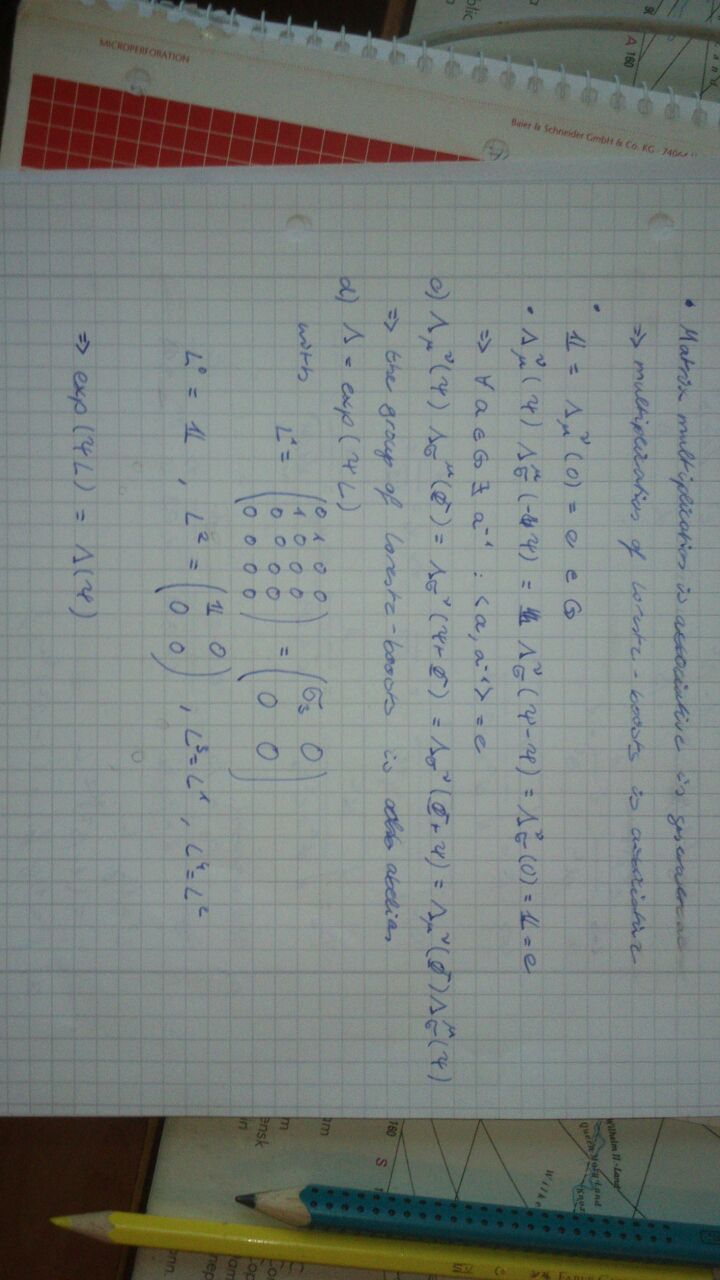 MICROPERFORATION
Baier & Schneider GmbH & Co. KG
• Matrix multiplication is associative in general
⇒ multiplication of Lorentz-boosts is associative
• 𝟙 = Λ_μ^ν(0) = e ∈ G
• Λ_μ^ν(ψ) Λ_σ^μ(-ψ) = Λ_σ^ν(ψ-ψ) = Λ_σ^ν(0) = 𝟙 = e
⇒ ∀ a ∈ G ∃ a⁻¹ : <a, a⁻¹> = e
c) Λ_μ^ν(ψ) Λ_σ^μ(Φ) = Λ_σ^ν(ψ+Φ) = Λ_σ^ν(Φ+ψ) = Λ_μ^ν(Φ) Λ_σ^μ(ψ)
⇒ the group of Lorentz-boosts is abelian
d) Λ = exp(ψL)
with L¹ = (0 1 0 0
1 0 0 0
0 0 0 0
0 0 0 0) = (σ₃ 0
0 0)
L⁰ = 𝟙 , L² = (𝟙 0
0 0) , L³ = L¹ , L⁴ = L²
⇒ exp(ψL) = Λ(ψ)
160
A
160
S
Wilhelm II-Land
Queen Mary Land
Wilke